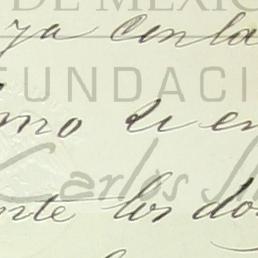 DE MÉXICO
ya con la
FUNDACI
mo de en
Carlos Sl
nte los do